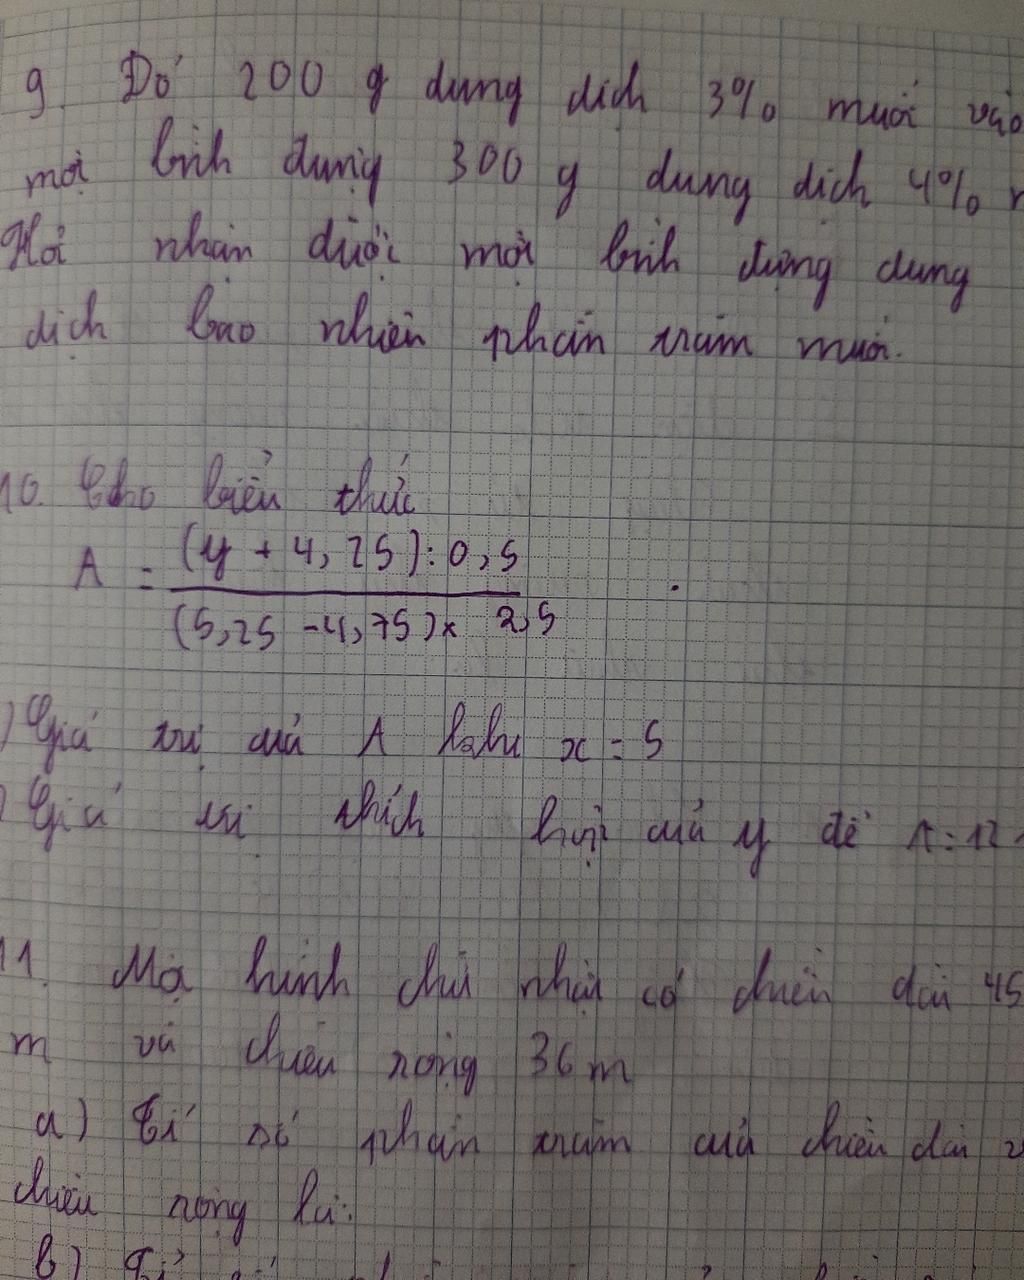 9. Đổ 200 g dung dịch 3% muối vào
một bình đựng 300 g dung dịch 4%
Hỏi nhận được một bình đựng dung
dịch bao nhiêu phần trăm muối.
10. Cho biểu thức
A = (y + 4,25) : 0,5
(5,25 - 4,75) x 2,5
) Giá trị của A x = 5
) Giá trị thích hợp của y để A = 12
11. Một hình chữ nhật có chiều dài 45
m và chiều rộng 36 m
a) Tỉ số phần trăm của chiều dài
chiều rộng là:
b) Tỉ số